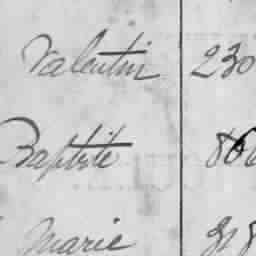 Valentin 230
Baptiste
Marie